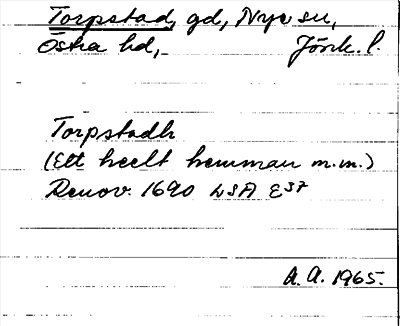 Torpstad, gd, Nye sn,
Östra hd, Jönk. l.
Torpstadh
(Ett heelt hemman m.m.)
Renov. 1690 LSA E57
A. A. 1965.